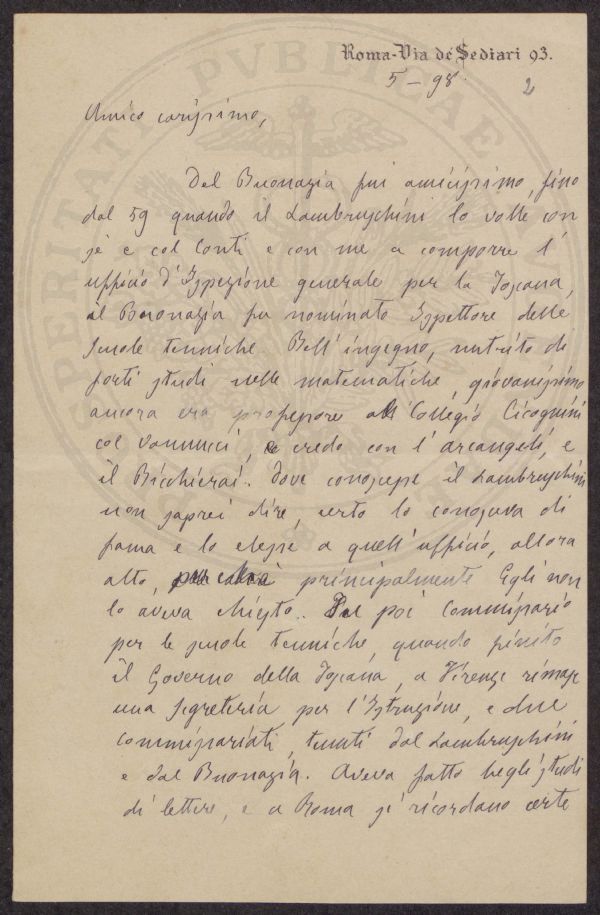 PVBLICAE
PROSPERITATI
Roma-Via de Sediari 93.
5-98.
2
Amico carissimo,
Del Buonazia fui amicissimo, fino
dal 59 quando il Lambruschini lo volle con
sè e col Conti e con me a comporre l'
uffició d'Ispezione generale per la Toscana,
il Buonazia fu nominato Ispettore delle
scuole tecniche. Bell'ingegno, nutrito di
forti studi nelle matematiche, giovanissimo
ancora era professore al Collegio Cicognini
col Vannucci, e credo con l'Arcangeli, e
il Bicchierai. Dove conoscesse il Lambruschini
non saprei dire, certo lo conosceva di
fama e lo elesse a quell'ufficio, allora
alto, principalmente Egli non
lo aveva chiesto. Fu poi Commissario
per le scuole tecniche, quando finito
il Governo della Toscana, a Firenze rimase
una Segreteria per l'Istruzione, e due
Commissariati, tenuti dal Lambruschini
e dal Buonazia. Aveva fatto begli studi
di lettere, e a Roma si ricordano certe